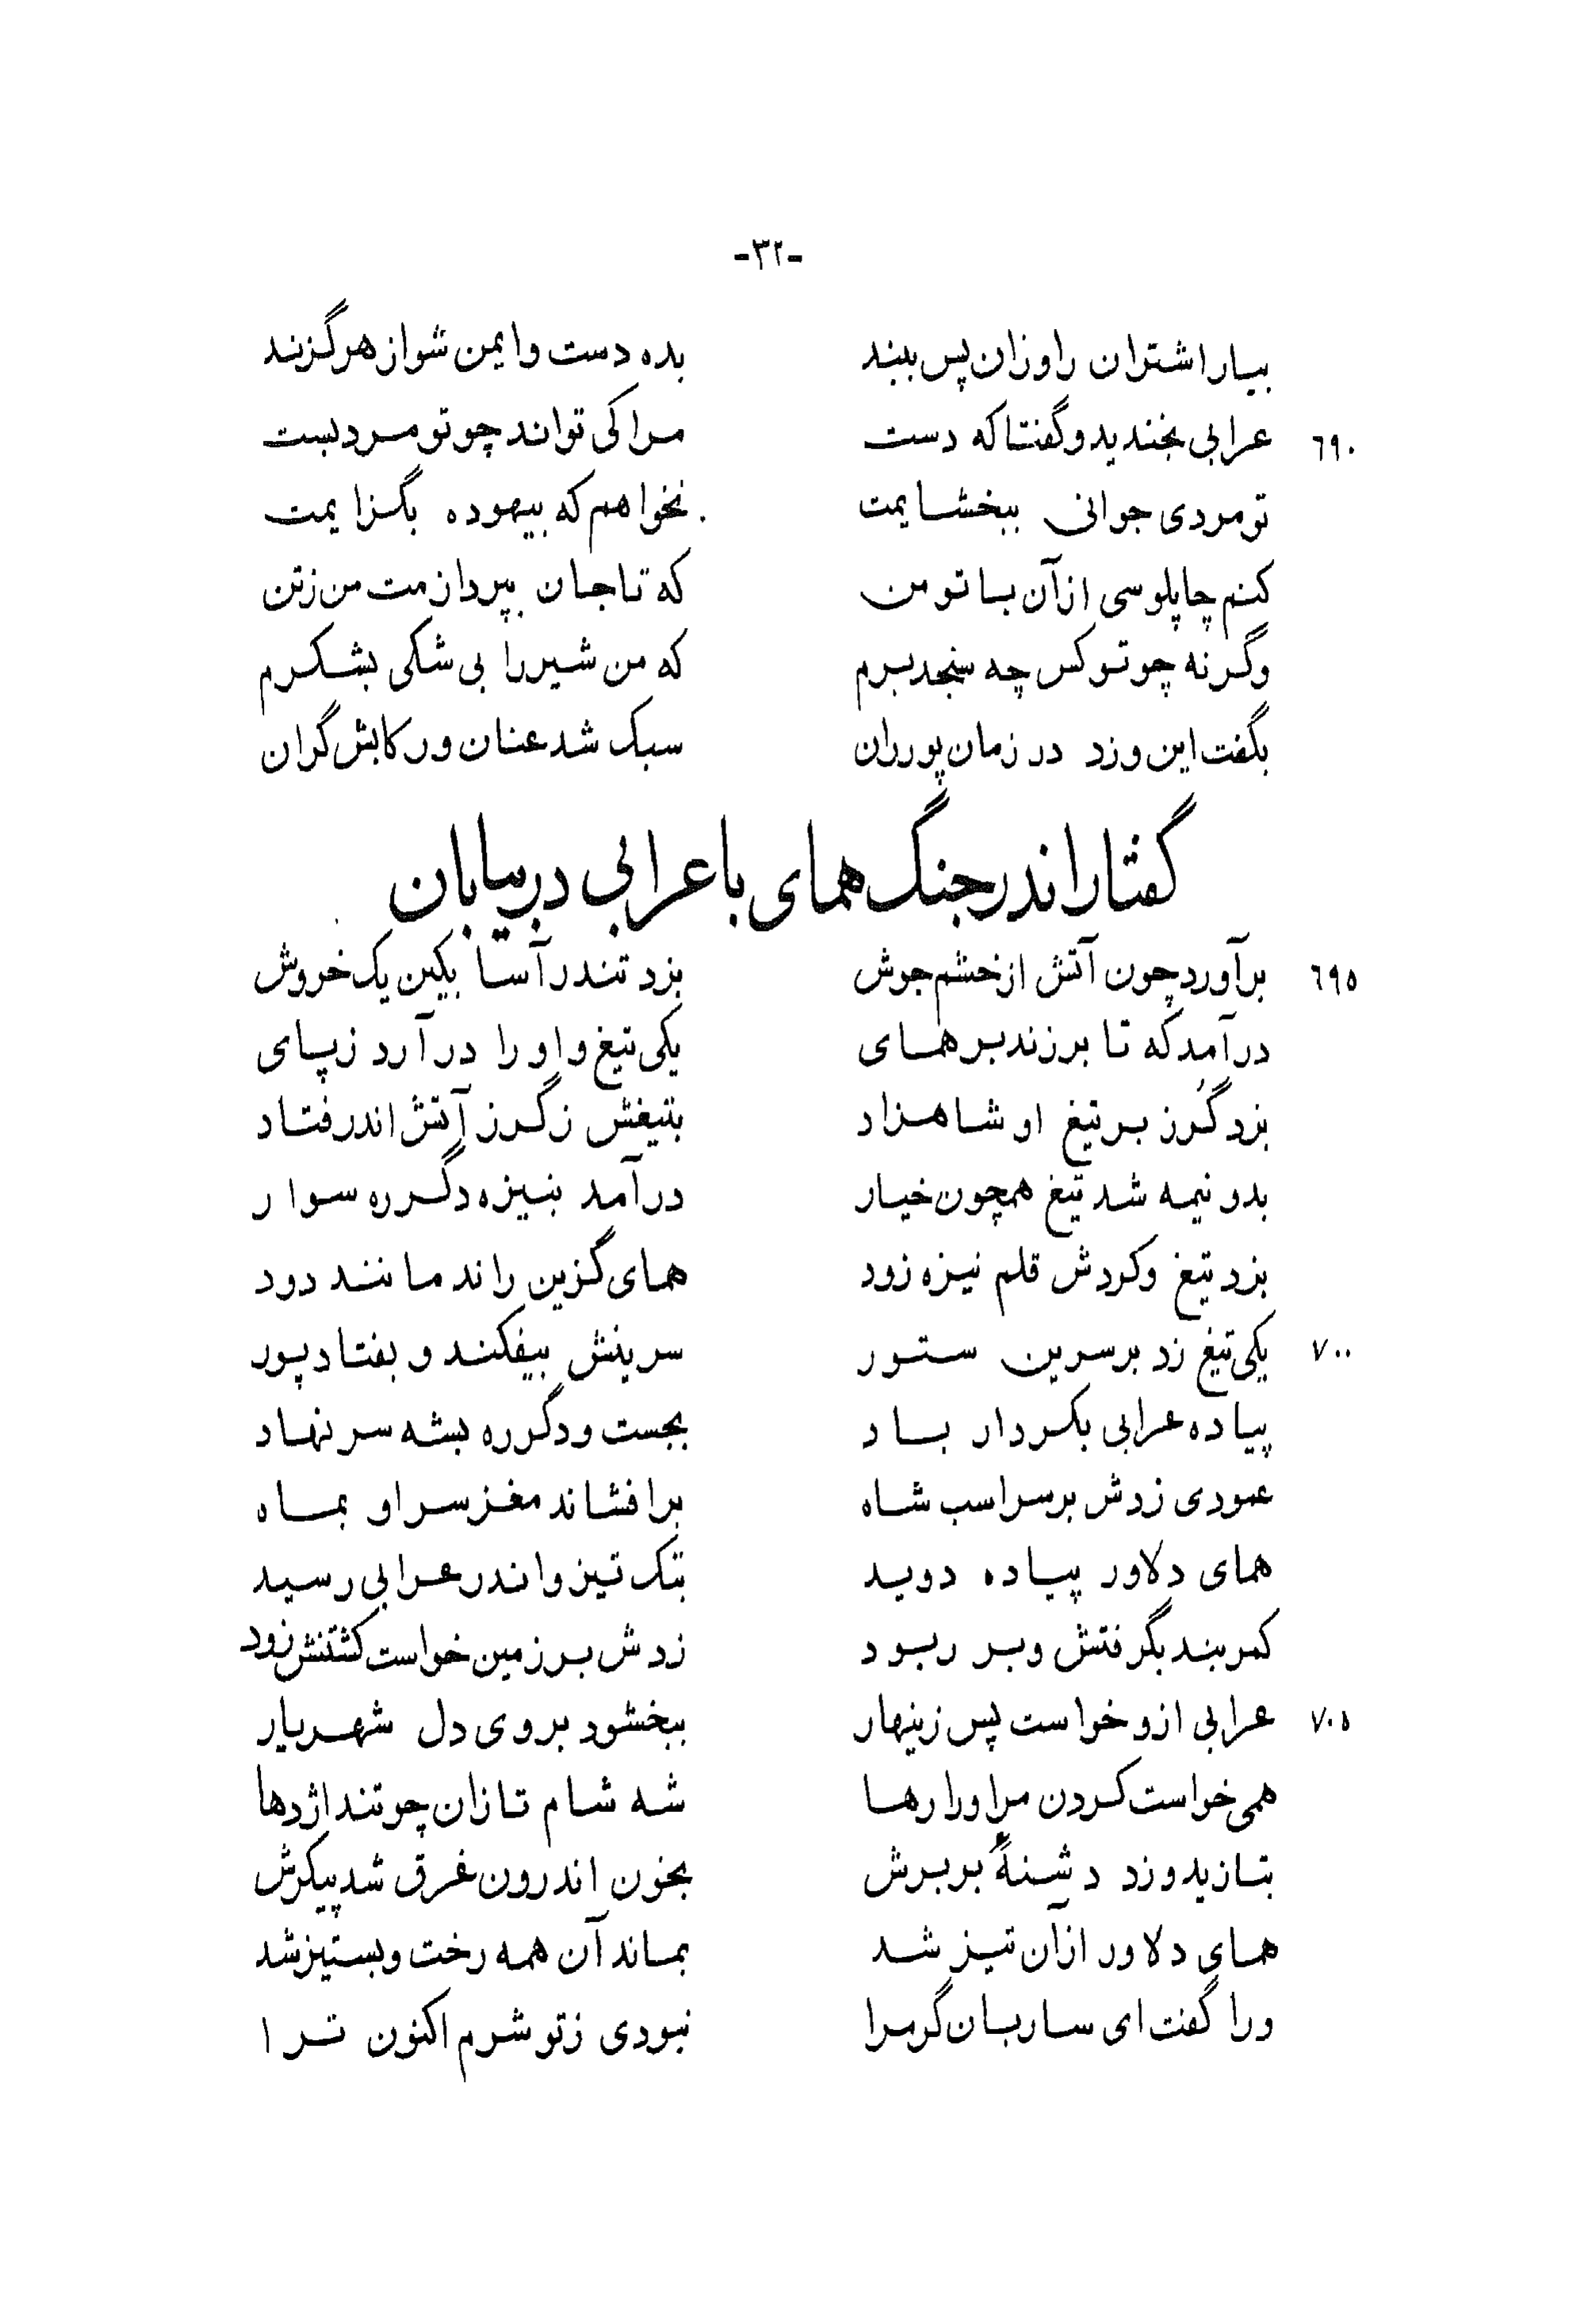 -۳۲-
بیار اشتران را وزان پس ببند بده دست و ایمن شو از هر گزند
٦٩٠ عرابی بخندید و گفتا که دست مرا کی تواند چو تو مرد بست
تو مردی جوانی ببخشایمت نخواهم که بیهوده بگزایمت
کنم چاپلوسی از آن با تو من که تا جان بپردازمت من ز تن
وگرنه چو تو کس چه سنجد برم که من شیر را بی شکی بشکرم
بگفت این و زد در زمان پور ران سبک شد عنان و رکابش گران
گفتار اندر جنگ همای با عرابی در بیابان
٦٩٥ برآورد چون آتش از خشم جوش بزد تندر آسا بکین یک خروش
درآمد که تا برزند بر همای یکی تیغ و او را درآرد ز پای
بزد گُرز بر تیغ او شاهزاد بتیغش ز گرز آتش اندر فتاد
بدو نیمه شد تیغ همچون خیار درآمد بنیزه دگر ره سوار
بزد تیغ و کردش قلم نیزه زود همای گزین راند مانند دود
٧٠٠ یکی تیغ زد بر سرین ستور سرینش بیفکند و بفتاد پور
پیاده عرابی بکردار باد بجست و دگر ره بشه سر نهاد
عمودی زدش بر سر اسب شاه برافشاند مغز سر او بماه
همای دلاور پیاده دوید بتک تیز و اندر عرابی رسید
کمربند بگرفتش و بر ربود زدش بر زمین خواست کشتنش زود
٧٠٥ عرابی ازو خواست پس زینهار ببخشود بروی دل شهریار
همی خواست کردن مر او را رها شه شام تازان چو تند اژدها
بتازید و زد دشنهٔ بر برش بخون اندرون غرق شد پیکرش
همای دلاور از آن تیز شد بماند آن همه رخت و بستیز شد
ورا گفت ای ساربان گر مرا نبودی ز تو شرم اکنون ترا